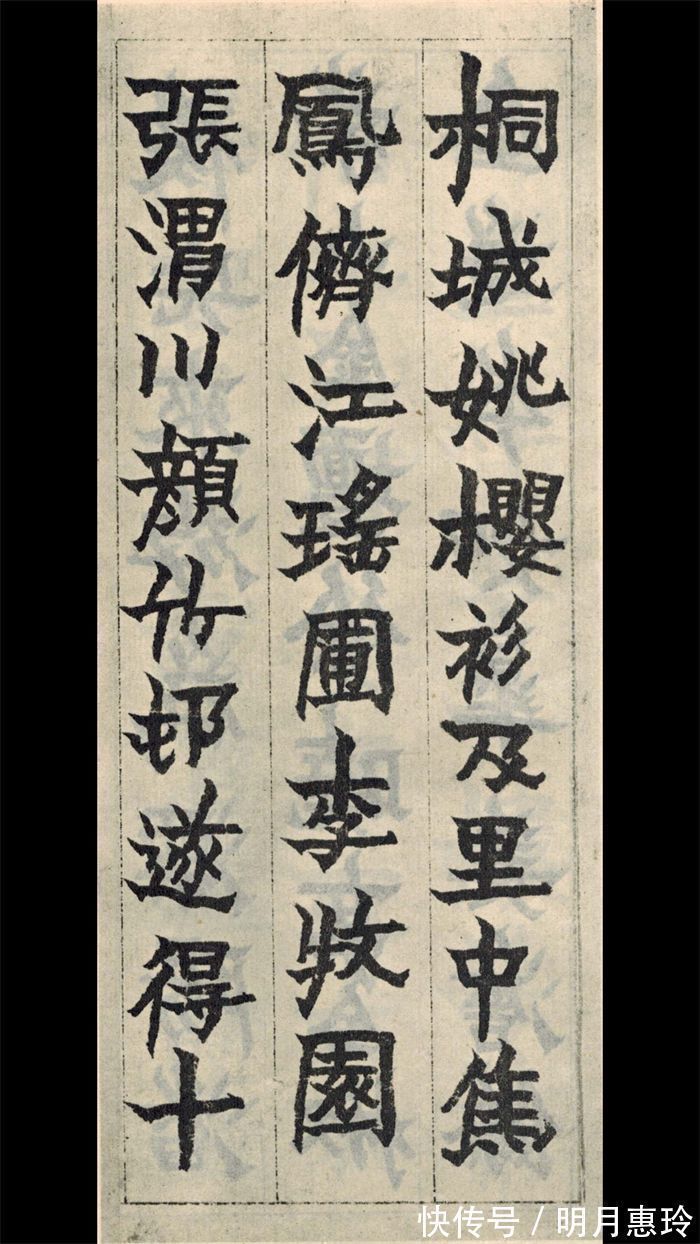 桐城姚櫻衫及里中焦
鳳儕江瑤圃李牧園
張渭川顔竹邨遂得十
快传号/明月惠玲